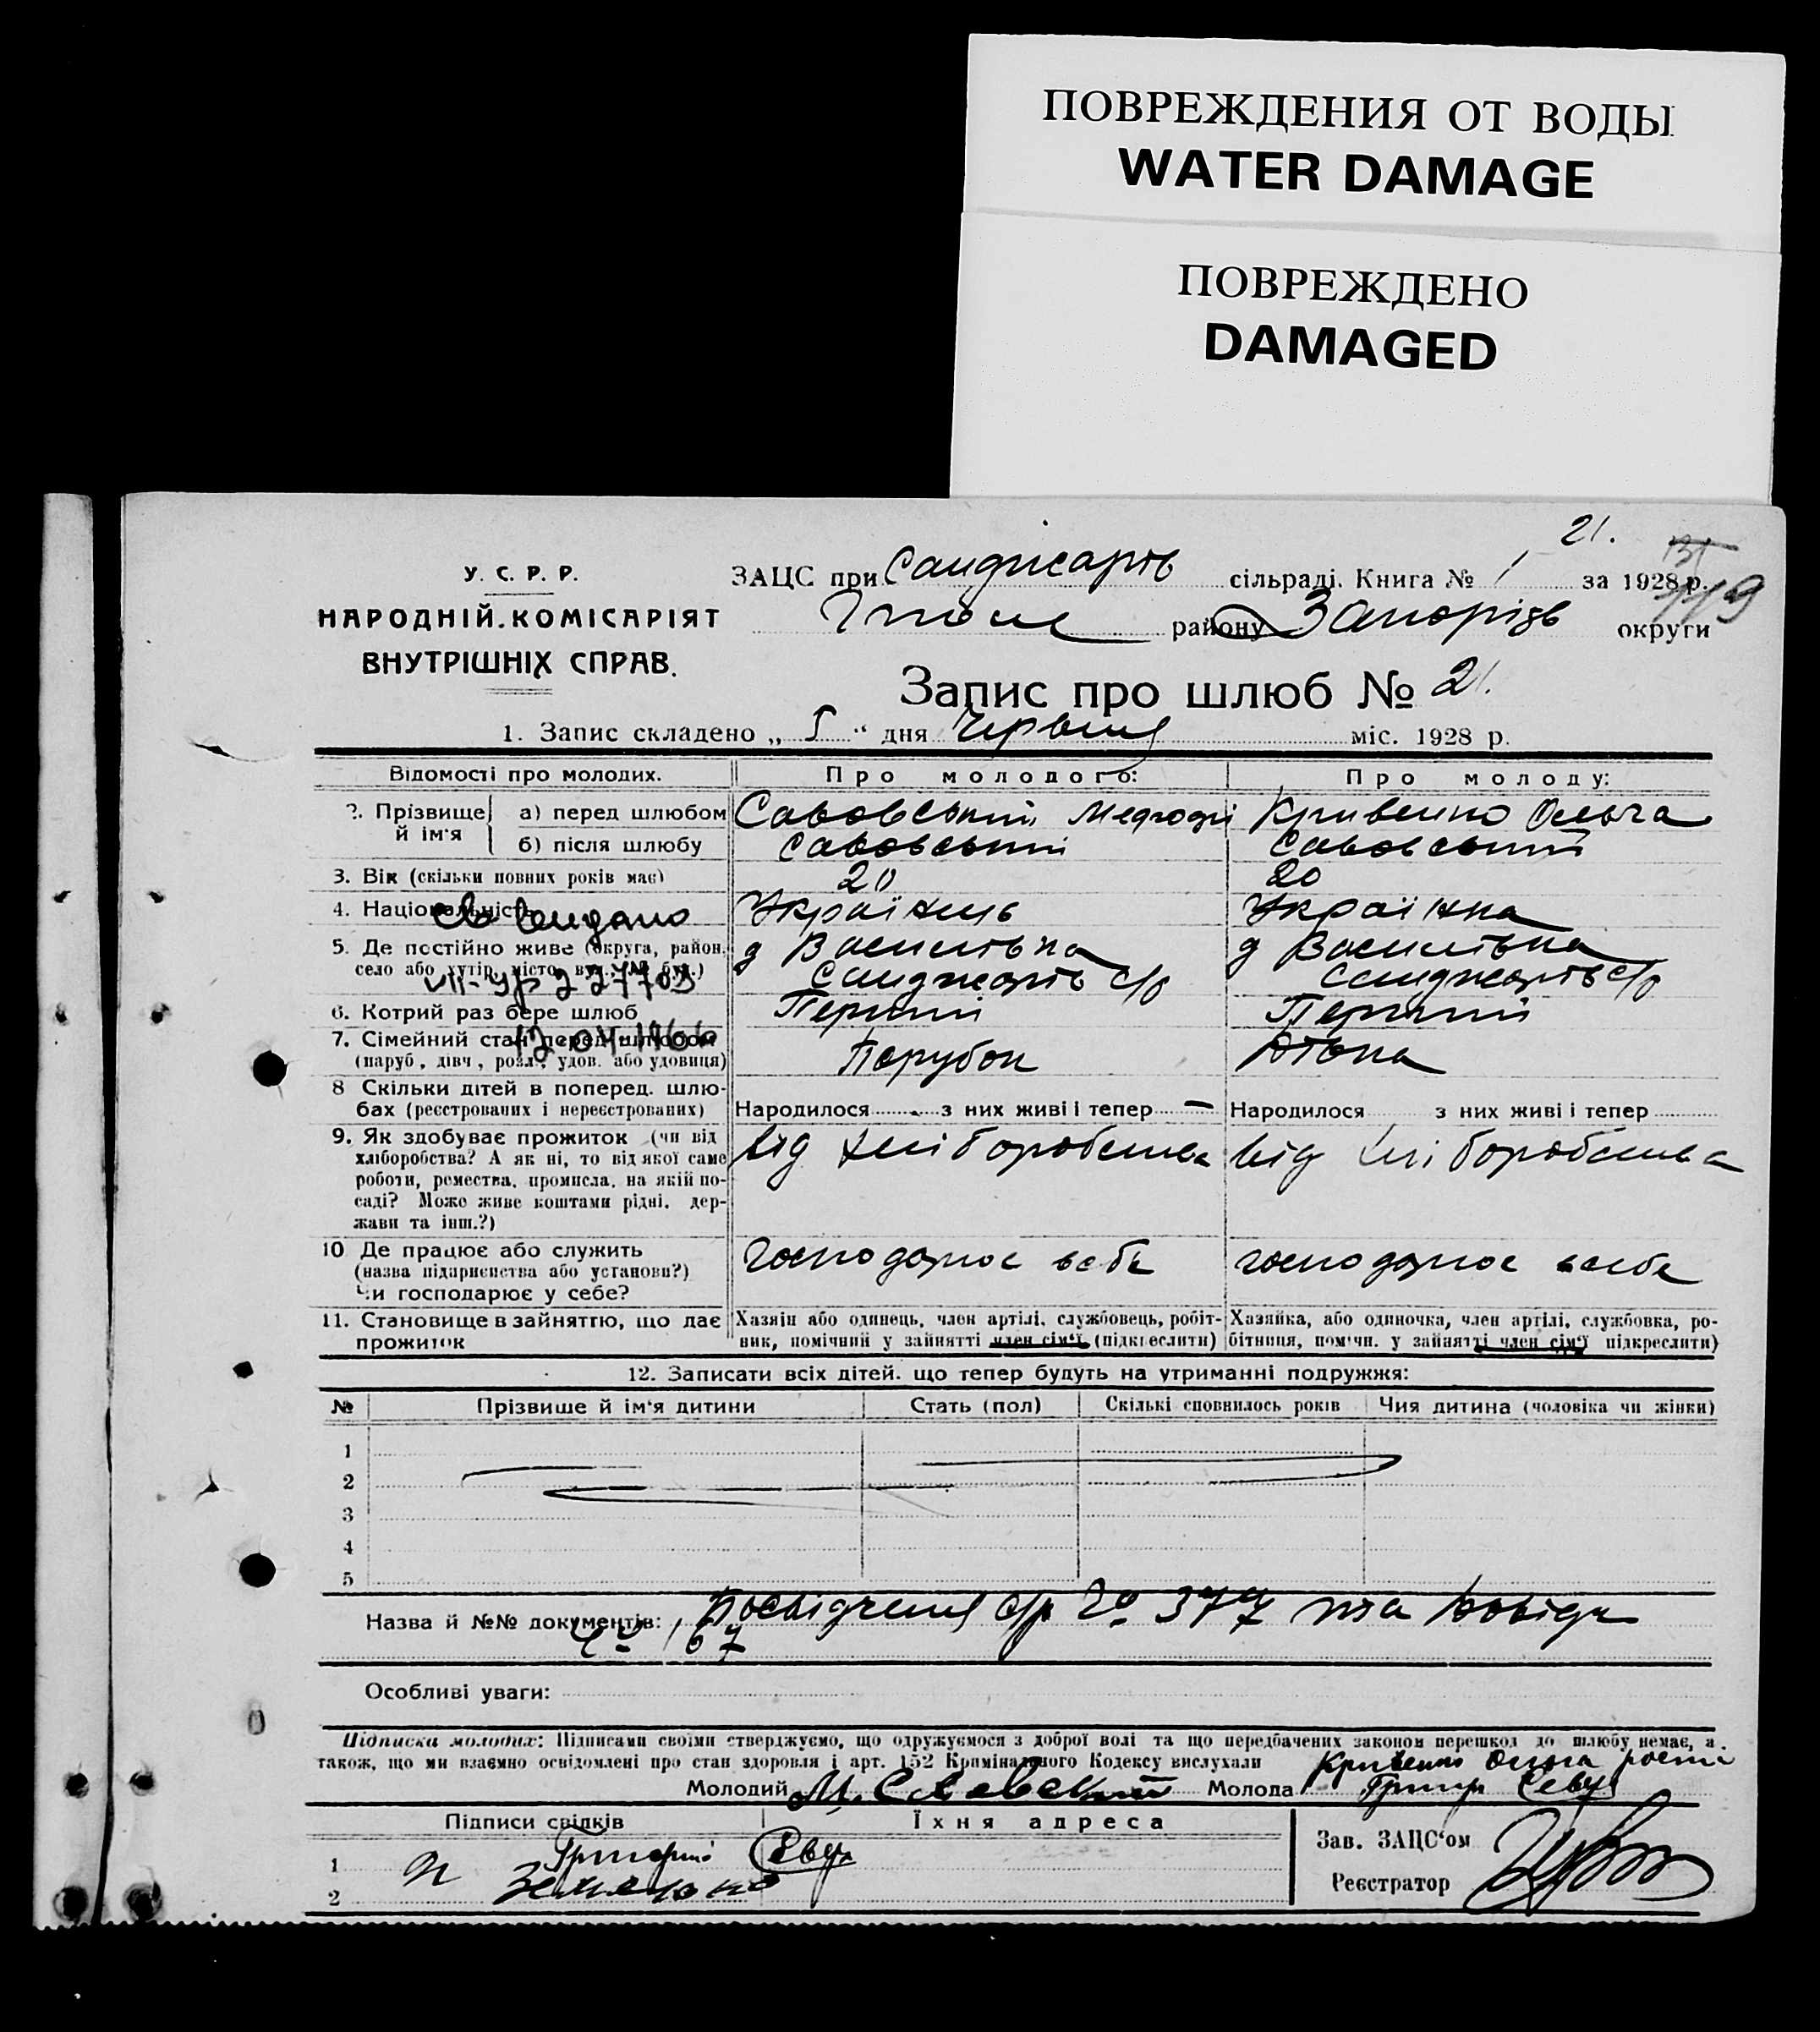 ПОВРЕЖДЕНИЯ ОТ ВОДЫ
WATER DAMAGE
ПОВРЕЖДЕНО
DAMAGED
21.
У. С. Р. Р.
НАРОДНІЙ КОМІСАРІЯТ
ВНУТРІШНІХ СПРАВ.
ЗАЦС при Санджарів сільраді. Книга № 1 за 1928 р.
району Запорізь округи
Запис про шлюб № 21.
1. Запис складено „ “ дня Червня міс. 1928 р.
Відомості про молодих. Про молодого: Про молоду:
2. Прізвище й ім'я а) перед шлюбом Савовський Мефодій Кривенко Ольга
б) після шлюбу Савовський Савовський
3. Вік (скільки повних років має) 20 20
4. Національність Українець Українка
5. Де постійно живе (округа, район. д Василівка д Василівка
село або хутір, місто, вул. № буд.) Санджарів с/р Санджарів с/р
6. Котрий раз бере шлюб Перший Перший
7. Сімейний стан перед шлюбом Парубок Дівка
(паруб, дівч, розл, удов. або удовиця)
8 Скільки дітей в поперед. шлю-
бах (реєстрованих і нереєстрованих) Народилося - з них живі і тепер — Народилося з них живі і тепер
9. Як здобуває прожиток (чи від від хліборобства від хліборобства
хліборобства? А як ні, то від якої саме
роботи, ремества, промисла, на якій по-
саді? Може живе коштами рідні, дер-
жави та інш.?)
10 Де працює або служить господарює в себе господарює в себе
(назва підприємства або установи?)
Чи господарює у себе?
11. Становище в зайняттю, що дає Хазяїн або одинець, член артілі, службовець, робіт- Хазяйка, або одиночка, член артілі, службовка, ро-
прожиток ник, помічний у зайнятті член сім'ї (підкреслити) бітниця, помічн. у зайнятті член сім'ї підкреслити)
12. Записати всіх дітей, що тепер будуть на утриманні подружжя:
№ Прізвище й ім'я дитини Стать (пол) Скількі сповнилось років Чия дитина (чоловіка чи жінки)
1
2
3
4
5
Назва й №№ документів: Посвідчення с/р № 377 та довідк
№ 167
Особливі уваги:
Підписка молодих: Підписами своїми стверджуємо, що одружуємося з доброї волі та що передбачених законом перешкод до шлюбу немає, а
також, що ми взаємно освідомлені про стан здоров'я і арт. 152 Кримінального Кодексу вислухали Кривенко Ольга
Молодий М. Савовский Молода
Підписи свідків Їхня адреса
1 Григорій
2
Зав. ЗАЦС'ом
Реєстратор